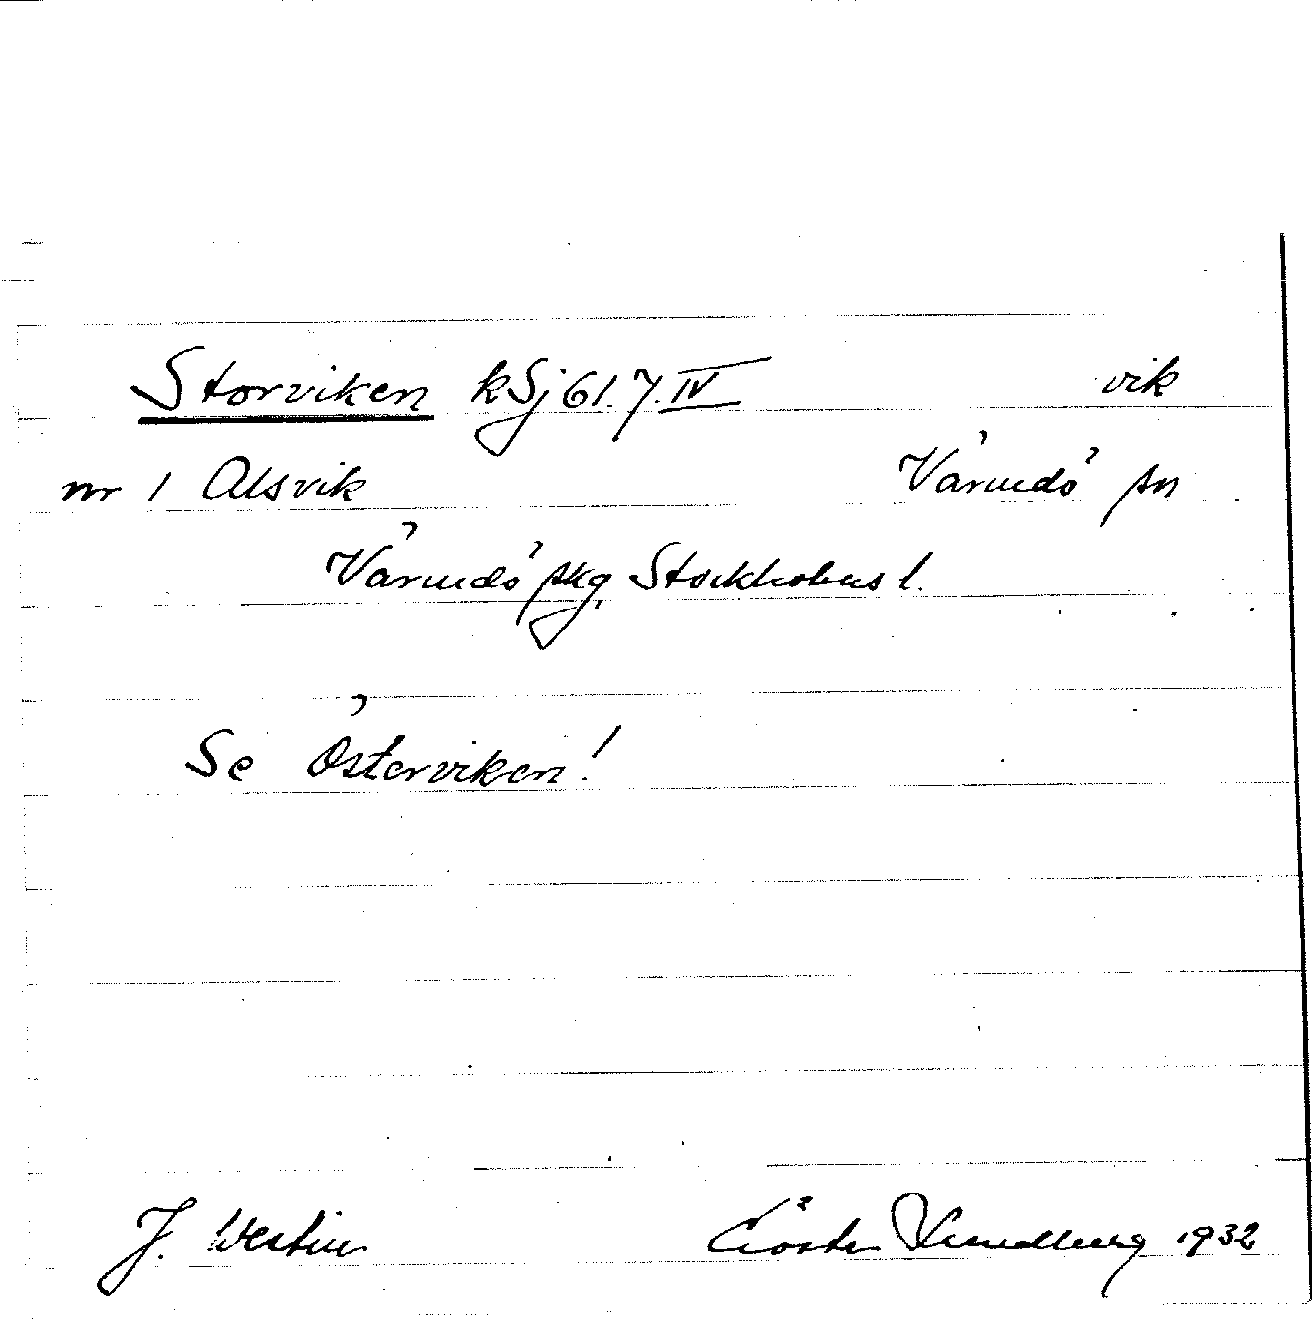 Storviken kSj 61.7.IV vik
nr 1 Alsvik Värmdö sn
Värmdö skg Stockholms l.
Se Österviken!
J. Westin Gösta Lundberg 1932